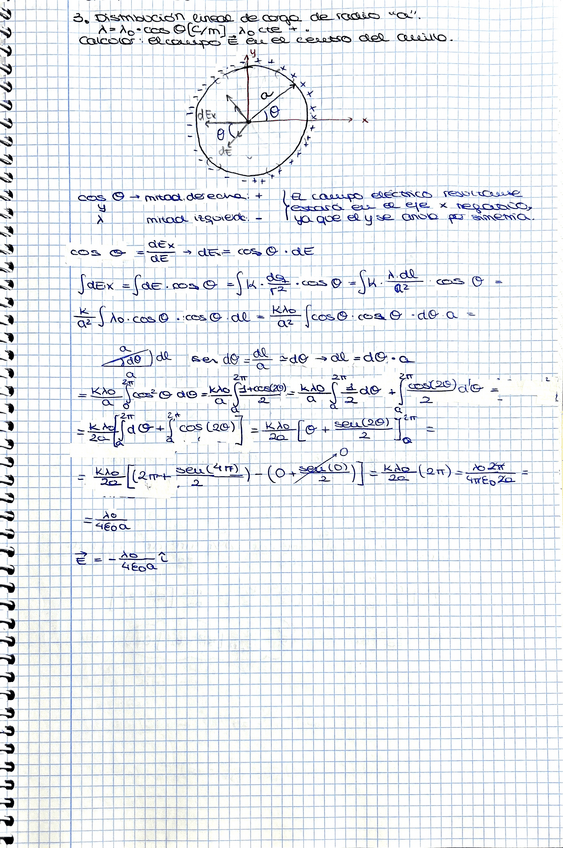 3. Distribución lineal de carga de radio "a".
λ = λ₀ · cos θ [C/m] λ₀ cte +.
Calcular el campo E⃗ en el centro del anillo.
y
a
θ
x
dEx
θ
dE
cos θ → mitad derecha: + { el campo eléctrico resultante
y estará en el eje x negativo,
λ mitad izquierd: - ya que el y se anula por simetría.
cos θ = dEx/dE → dEx = cos θ · dE
∫dEx = ∫dE · cos θ = ∫K · dq/r² · cos θ = ∫K · λ·dl/a² · cos θ =
K/a² ∫λ₀ · cos θ · cos θ · dl = Kλ₀/a² ∫cos θ · cos θ · dθ a =
a dθ dl a sen dθ = dl/a ≃ dθ → dl = dθ · a
= Kλ₀/a ∫₀^2π cos² θ dθ = Kλ₀/a ∫₀^2π (1+cos(2θ))/2 = Kλ₀/a ∫₀^2π 1/2 dθ + ∫₀^2π cos(2θ)/2 dθ =
= Kλ₀/2a [∫₀^2π dθ + ∫₀^2π cos(2θ)] = Kλ₀/2a [θ + sen(2θ)/2]₀^2π =
= Kλ₀/2a [(2π + sen(4π)/2) - (0 + sen(0)/2)] = Kλ₀/2a (2π) = λ₀ 2π/4πε₀ 2a =
0
= λ₀/4ε₀a
E⃗ = - λ₀/4ε₀a î